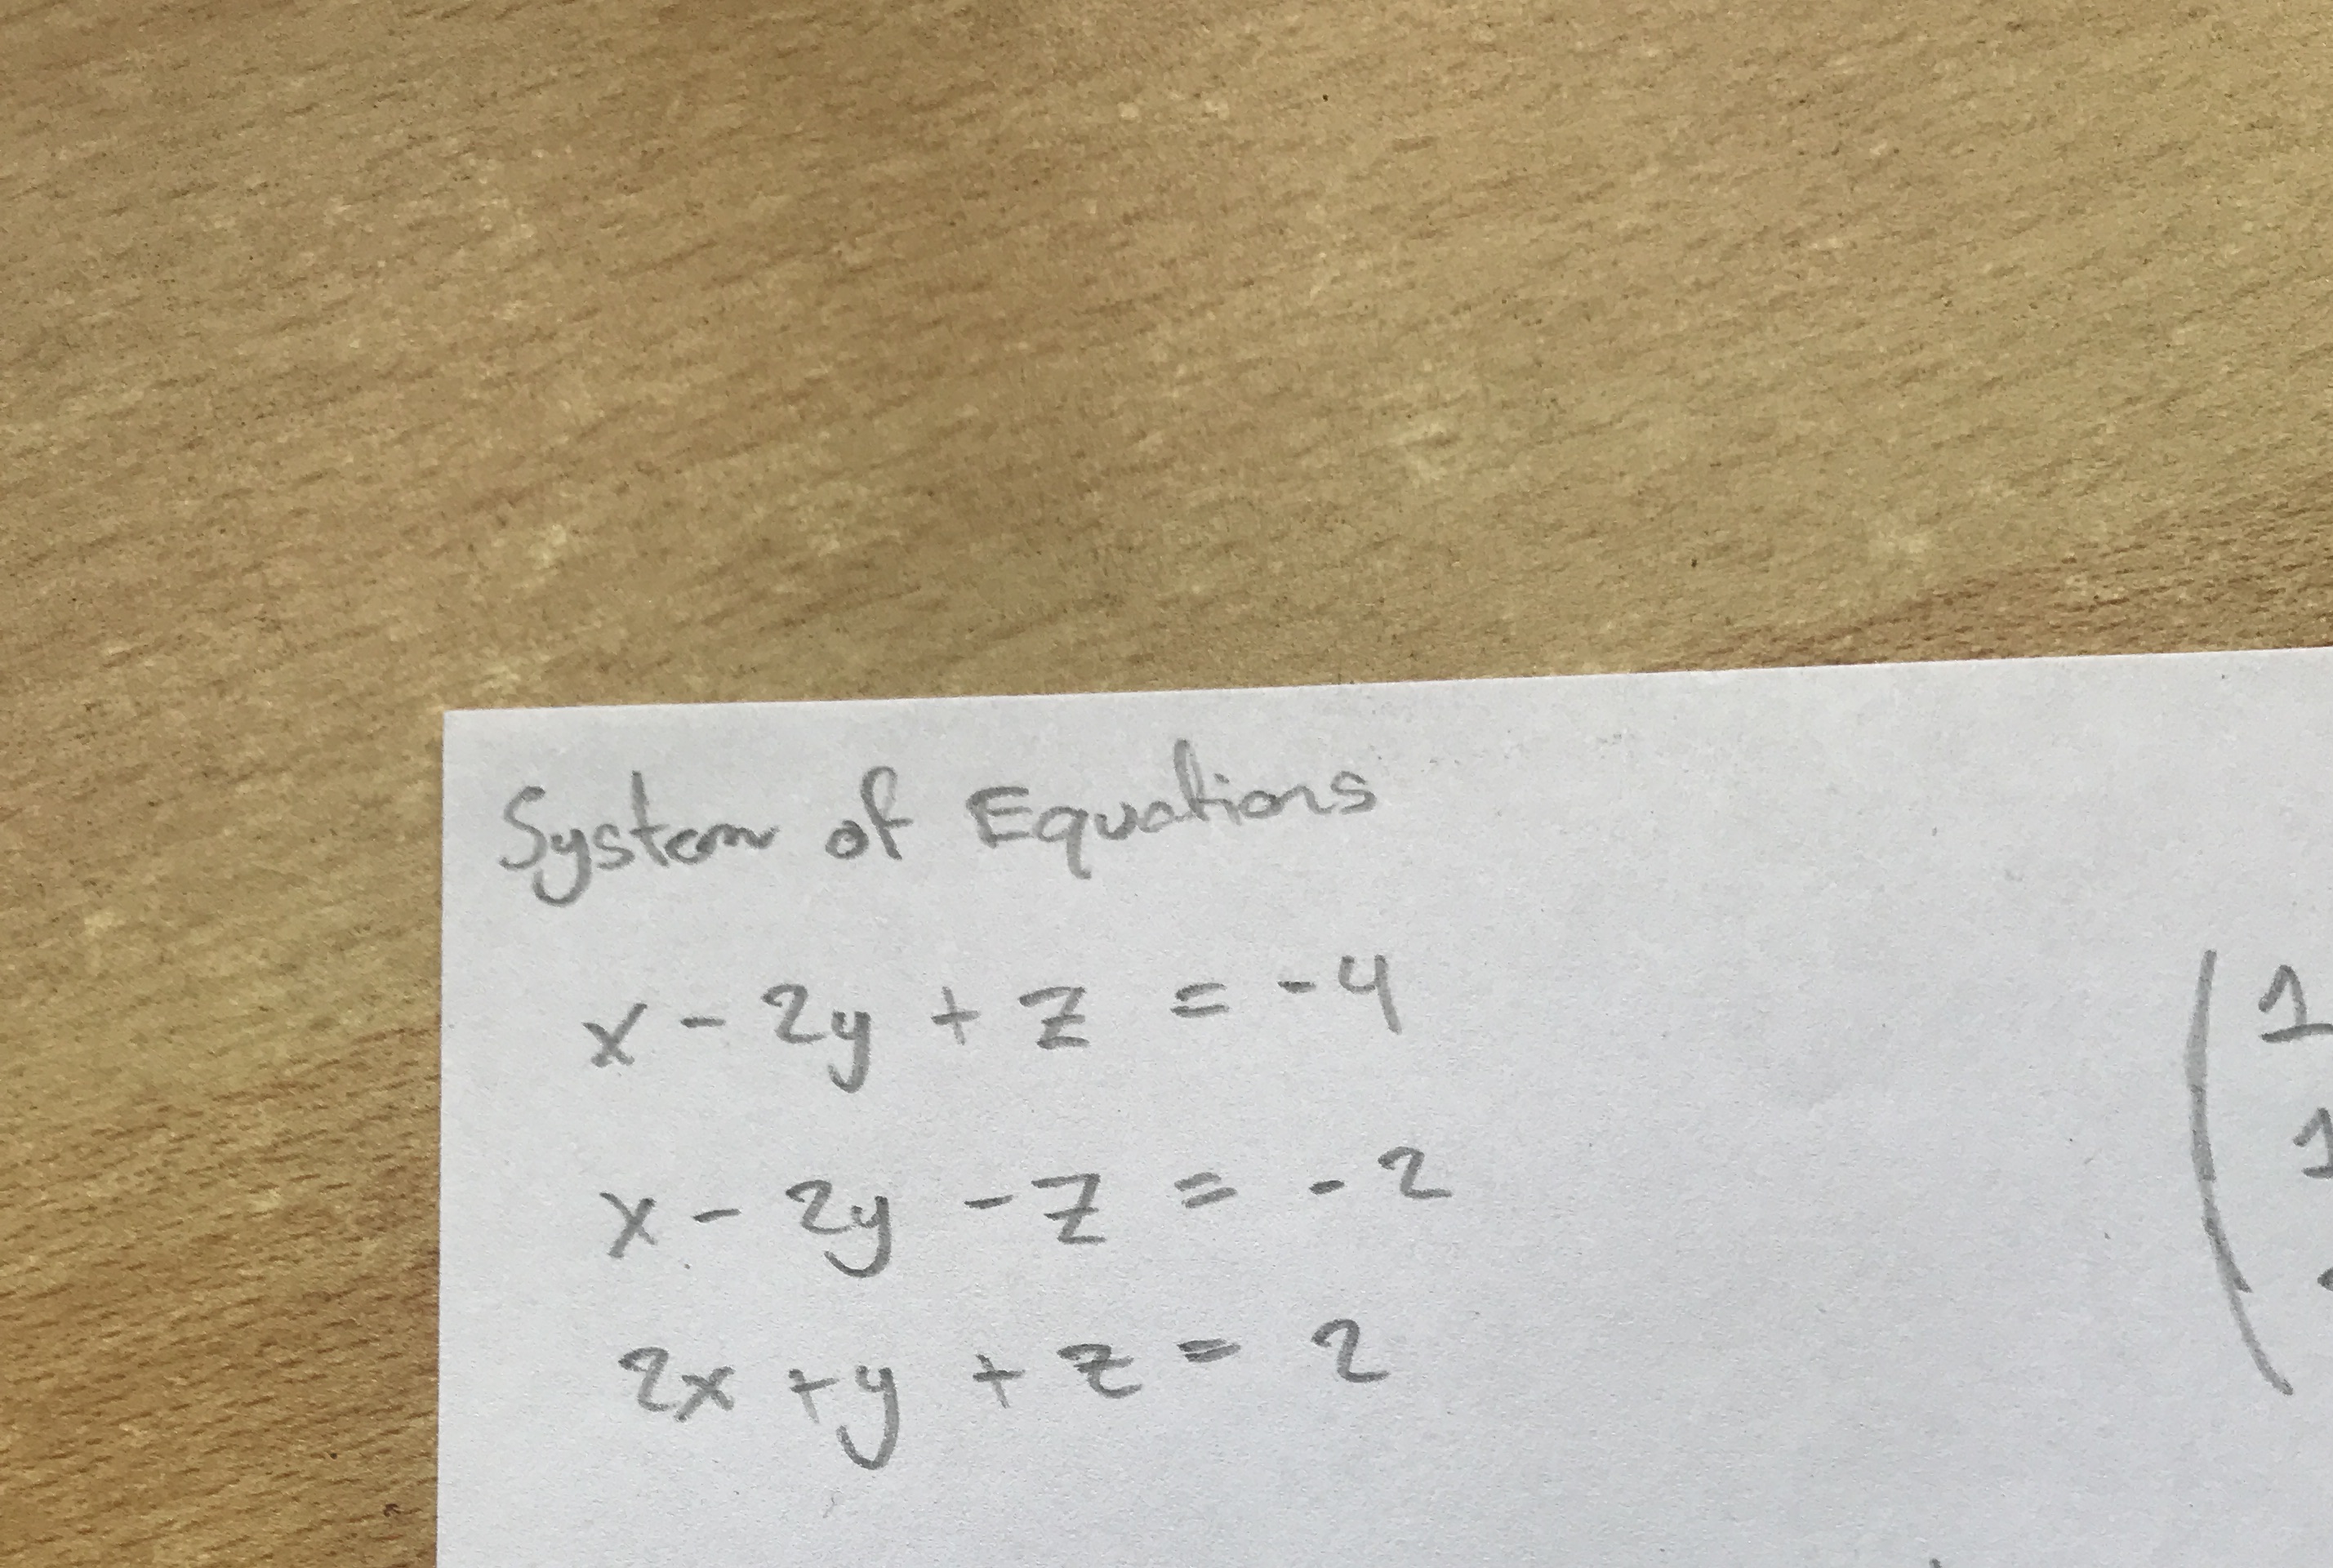 System of Equations
x - 2y + z = -4
x - 2y - z = -2
2x + y + z = 2
( 1
1